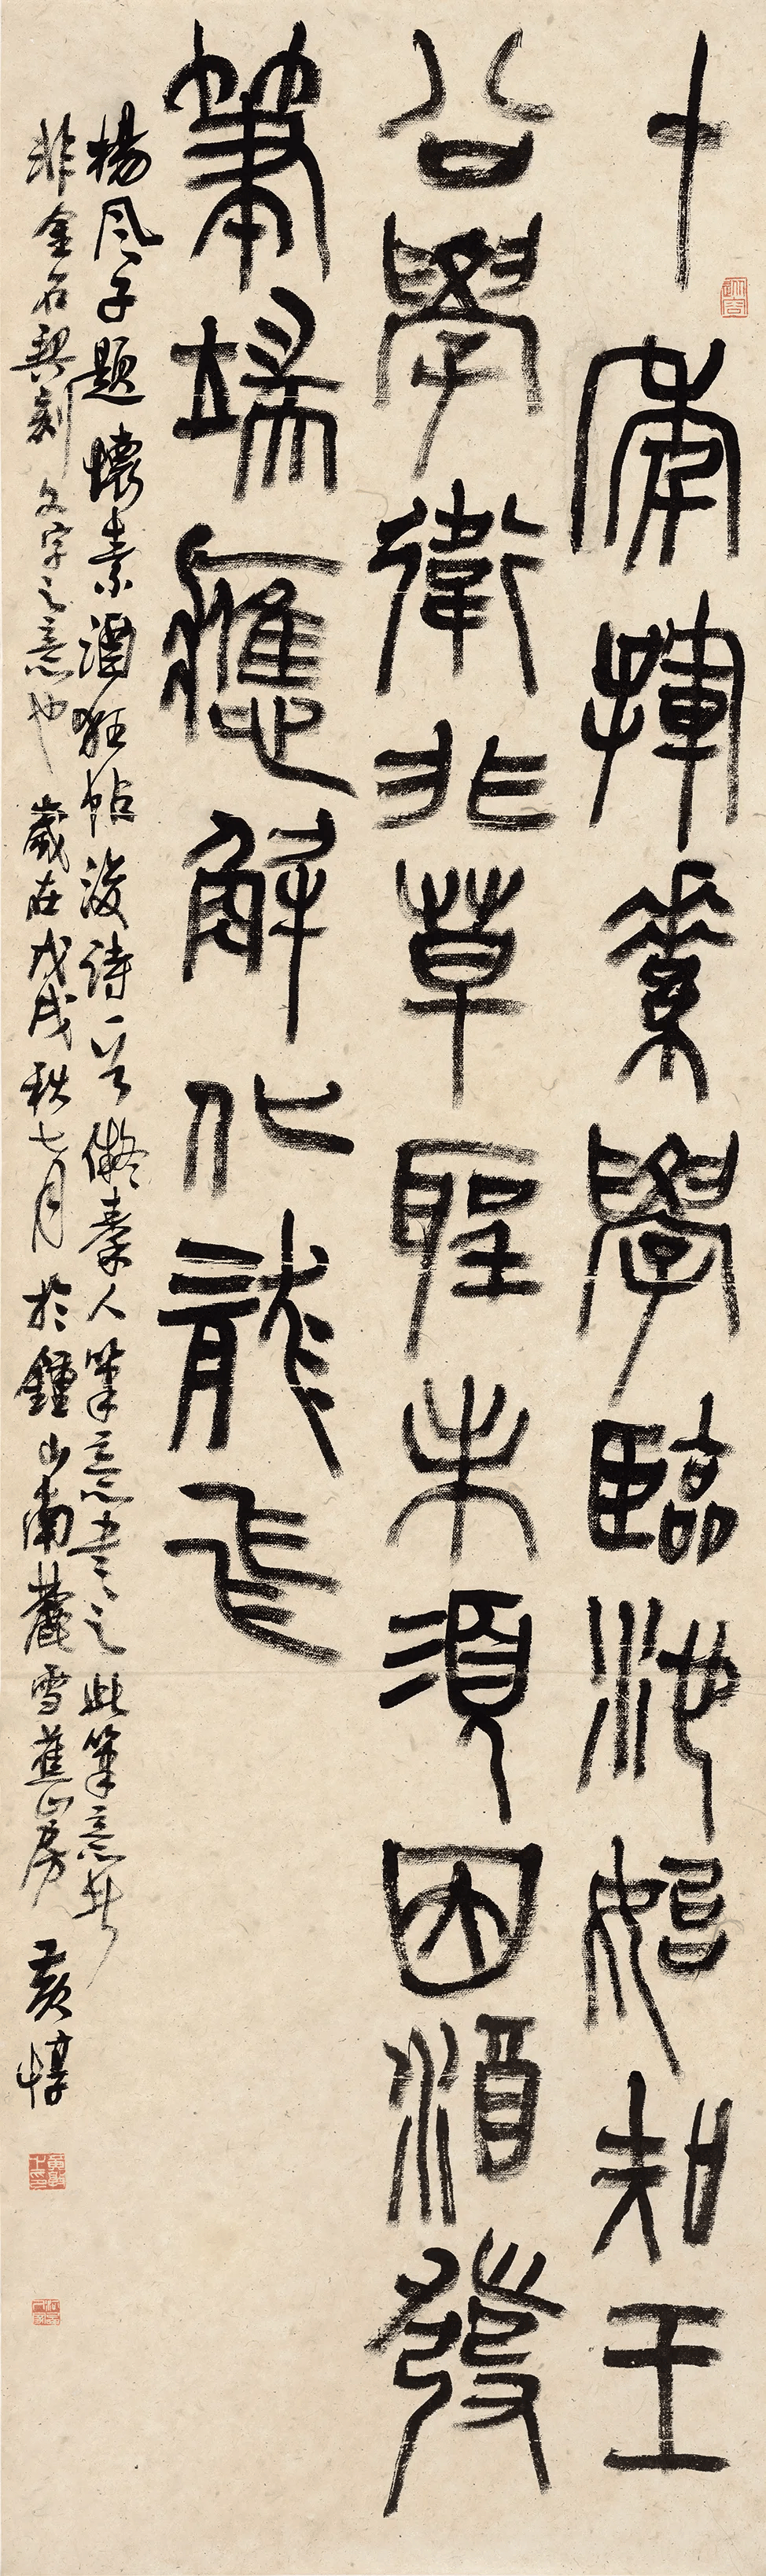 十年揮素學臨池始知王
公學衛非草聖未須因酒發
筆端應解化龍飛
楊風子題懷素酒狂帖後詩一首儗秦人筆意書之此筆意者
非金石契刻文字之意也歲在戊戌秋七月於鍾山南麓雪蕉山房黃惇